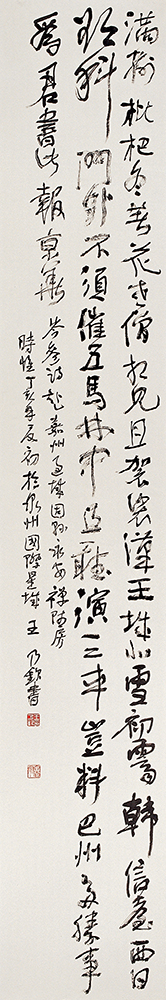 滿樹枇杷冬著花老僧相見具袈裟漢王城北雪初霽韓信臺西日
欲斜門外不須催五馬林中且聽演三車豈料巴州多勝事
為君書此報京華 岑參詩赴嘉州過城固尋永安禪師房
時惟丁亥年夏初於泉州國際星城 王乃欽書